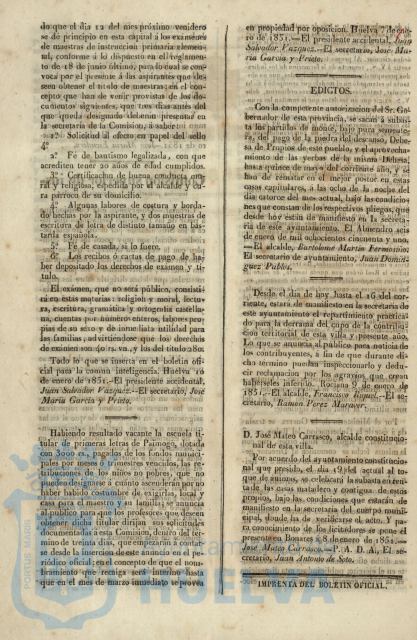 do que el dia 12 del mes próximo venidero
se dé principio en esta capital á los exámenes
de maestras de instruccion primaria elemen-
tal, conforme á lo dispuesto en el reglamen-
to de 18 de junio último, para lo cual se con-
voca por el presente á las aspirantes que de-
seen obtener el título de maestras; en el con-
cepto que han de venir provistas de los do-
cumentos siguientes, que tres dias antes del
que queda designado deberán presentar en
la secretaría de la Comision, á saber:
1.º Solicitud al efecto en papel del sello
4.º
2.º Fé de bautismo legalizada, con que
acrediten tener 20 años de edad cumplidos.
3.º Certificacion de buena conducta mo-
ral y religiosa, espedida por el alcalde y cu-
ra párroco de su domicilio.
4.º Algunas labores de costura y borda-
do hechas por la aspirante, y dos muestras de
escritura de letra de distinto tamaño en bas-
tarda española.
5.º Fé de casada, si lo fuere.
6.º Los recibos ó cartas de pago de ha-
ber depositado los derechos de exámen y tí-
tulo.
El exámen, que no será público, consisti-
rá en estas materias: religion y moral, lectu-
ra, escritura, gramática y ortografia castella-
na, cuentas por números enteros, labores pro-
pias de su sexo y de inmediata utilidad para
las familias, advirtiéndose que los derechos
de exámen son 40 rs. vn., y los del título 280.
Todo lo que se inserta en el boletin ofi-
cial para la comun inteligencia. Huelva 10
de enero de 1851.-El presidente accidental,
Juan Salvador Vazquez.-El secretario, José
Maria Garcia y Prieto.
Habiendo resultado vacante la escuela ti-
tular de primeras letras de Paimogo, dotada
con 3000 rs. pagados de los fondos munici-
pales por meses ó trimestres vencidos, las re-
tribuciones de los niños no pobres, que no
pueden designarse á cuánto ascenderán por no
haber habido costumbre de exigirlas, local y
casa para el maestro y su familia; se anuncia
al público para que los profesores que deseen
obtener dicho título dirijan sus solicitudes
documentadas á esta Comision, dentro del tér-
mino de treinta dias, que empezarán á contar-
se desde la insercion de este anuncio en el pe-
riódico oficial; en el concepto de que el nom-
bramiento que recaiga será interino hasta
que en el mes de marzo inmediato se provea
en propiedad por oposicion. Huelva 7 de ene-
ro de 1851.-El presidente accidental, Juan
Salvador Vazquez.-El secretario, José Ma-
ria Garcia y Prieto.
EDICTOS.
Con la competente autorizacion del Sr. Go-
bernador de esta provincia, se sacan á subas-
ta los partidos de monte, bajo para semente-
ra, del pago de la puerta del descanso, Dehe-
sa de Propios de este pueblo, y el aprovecha-
miento de las yerbas de la misma Dehesa
hasta quince de marzo del corriente año, y se
han de rematar en el mejor postor en estas
casas capitulares, á las ocho de la noche del
dia catorce del mes actual, bajo las condicio-
nes que constan de los respectivos pliegos, que
desde hoy están de manifiesto en la secreta-
ría de este ayuntamiento. El Almendro seis
de enero de mil ochocientos cincuenta y uno.
-El alcalde, Bartolomé Martin Fernandino.
El secretario de ayuntamiento, Juan Domin-
guez Pablos.
Desde el dia de hoy hasta el 16 del cor-
riente, estará de manifiesto en la secretaría de
este ayuntamiento el repartimiento practica-
do para la derrama del cupo de la contribu-
cion territorial de esta villa y presente año.
Lo que se anuncia al público para noticia de
los contribuyentes, á fin de que durante di-
cho término puedan inspeccionarlo y dedu-
cir reclamacion por los agravios que crean
habérseles inferido. Rociana 9 de enero de
1851.-El alcalde, Francisco Riquel.-El se-
cretario, Ramon Perez Marquez.
D. José Mateo Carrasco, alcalde constitucio-
nal de esta villa.
Por acuerdo del ayuntamiento constitucio-
nal que presido, el dia 19 del actual al to-
que de ánimas, se celebrará la subasta en ren-
ta de las casas matadero y contigua de este
propios, bajo las condiciones que estarán de
manifiesto en la secretaría del cuerpo muni-
cipal, donde ha de verificarse el acto. Y pa-
ra conocimiento de los licitadores se pone el
presente en Bonares á 8 de enero de 1851.-
José Mateo Carrasco.-P. A. D. A., El se-
cretario, Juan Antonio de Soto.
IMPRENTA DEL BOLETIN OFICIAL.
HUELVA